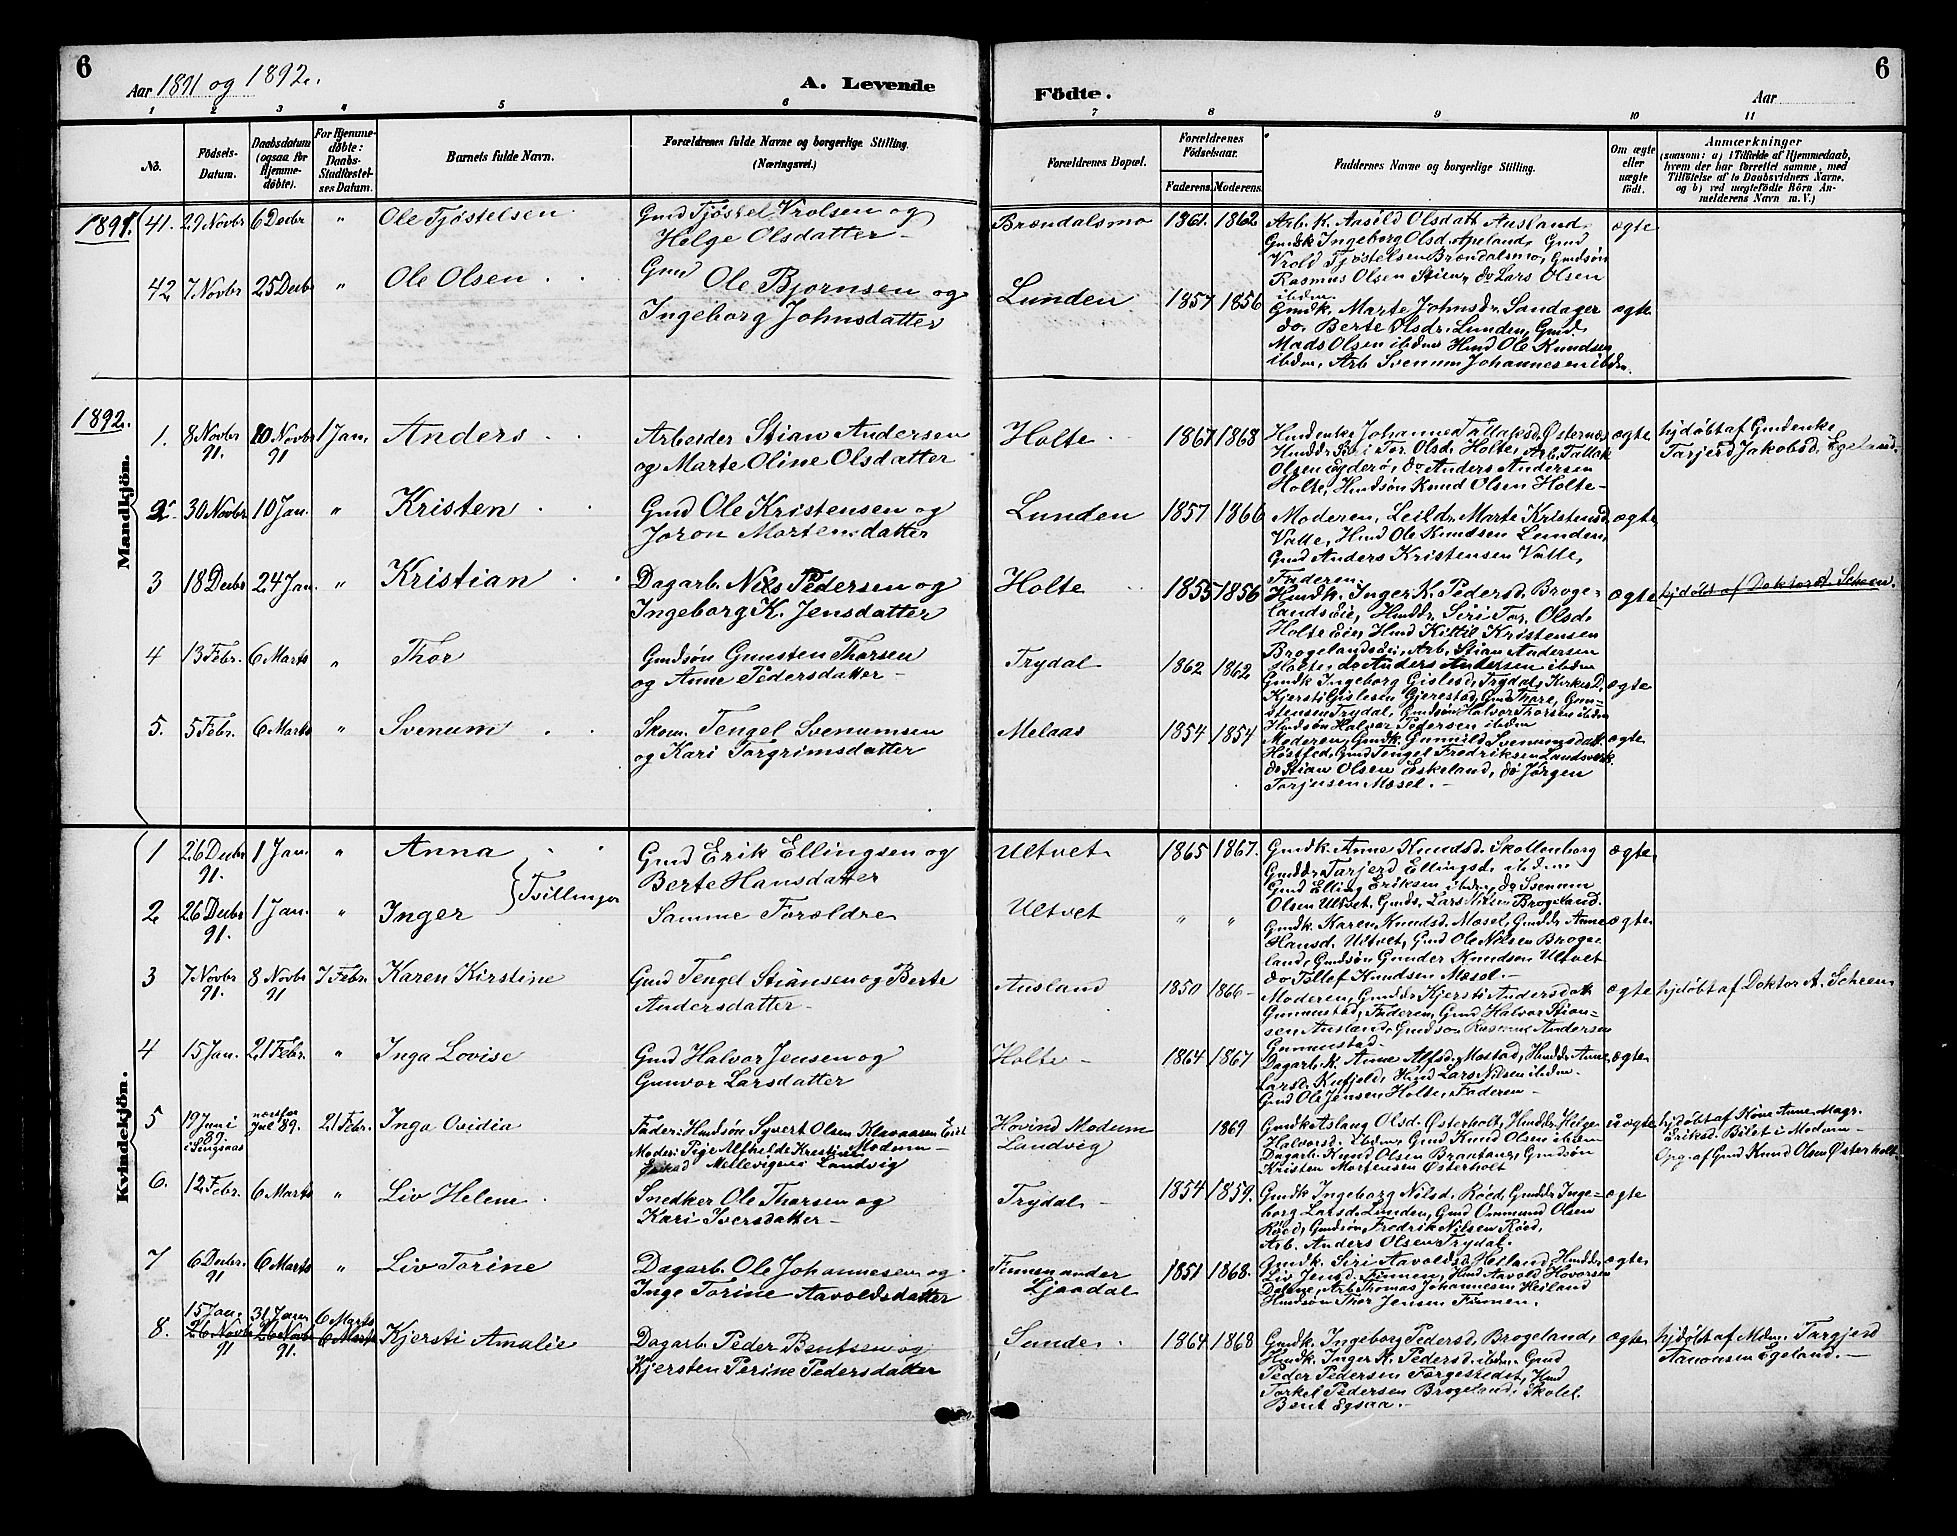 6
Aar 1891 og 1892.
A. Levende
Födte.
Aar
6
1 2 3 4 5 6 7 8 9 10 11
No.
Födsels-Datum.
Daabsdatum (ogsaa for Hjemme-døbte).
For Hjemme-døbte: Daabs-Stadfæstel-ses Datum.
Barnets fulde Navn.
Forældrenes fulde Navne og borgerlige Stilling. (Næringsvei.)
Forældrenes Bopæl.
Forældrenes Födselsaar.
Faderens. Moderens.
Faddernes Navne og borgerlige Stilling.
Om ægte eller uægte födt.
Anmærkninger
(saasom: a) i Tilfælde af Hjemmedaab,
hvem der har forrettet samme, med
Tilføielse af to Daabsvidners Navne,
og b) ved uægtefödte Börn An-
melderens Navn m. V.)
1891. 41. 29 Novbr 6 Decbr " Ole Tjöstelsen Gmd Tjöstel Vrolsen og
Helge Olsdatter –
Brændalsmo 1861. 1862 ægte
Arb. K. Aasild Olsdatt Aasland,
Gmdk Ingeborg Olsd. Apeland, Gmd
Vrold Tjöstelsen Brændalsmo, Gmdsön
Rasmus Olsen Stien, do Lars Olsen
ibdm.
42 7 Novbr 25 Decbr " Ole Olsen Gmd Ole Bjornsen og
Ingeborg Johnsdatter
Lunden 1857 1856 ægte
Gmdk. Marte Johnsdr. Sandager
do. Berte Olsdr. Lunden, Gmd.
Mads Olsen ibdm Hmd Ole Knudsen
ibdm, Arb Svenum Johannesen ibdm.
1892.
Mandkjön.
1. 8 Novbr 91. 10 Novbr 91 1 Jan. Anders Arbeider Stian Andersen
og Marte Oline Olsdatter
Holte 1867 1868 ægte
Hmdenke Johanne Tallaksd. Østernæs
Hmddr. Siri Tor. Olsd. Holte, Arb. Tallak
Olsen Eyderö, do Anders Andersen
Holte, Hmdsön Knud Olsen Holte –
hjdöbt af Gmdenke
Tarjerd Jakobsd. Egeland.
2 30 Novbr 10 Jan. " Kristen Gmd Ole Kristensen og
Joron Mortensdatter
Lunden 1857 1866 ægte
Moderen, Leildr. Marte Kristensd
Valle, Hmd Ole Knudsen Lunden,
Gmd Anders Kristensen Valle,
Faderen.
3 18 Decbr 24 Jan. " Kristian Dagarb. Nils Pedersen og
Ingeborg K. Jensdatter
Holte 1855 1856 ægte
Hmdk. Inger K. Pedersd. Broge-
landsöie, Hmddr. Siri Tor. Olsd.
Holte Eie, Hmd Kittil Kristensen
Brogelandsöie, Arb. Stian Andersen
Holte, do Anders Andersen ibdm
hjdöbt af Doktor A. Scheen.
4 13 Febr. 6 Marts " Thor Gmdsön Gunsten Thorsen
og Anne Pedersdatter –
Trydal 1862 1862 ægte
Gmdk Ingeborg Gislesd, Trydal, Kirkes D.
Kjersti Gislesen Gjerestad, Gmd Thore Gun-
stensen Trydal, Gmdsön Halvor Thorsen ibdm
Hmdsön Halvor Pedersen ibdm
5. 5 Febr. 6 Marts " Svenum Skom. Tengel Svenumsen
og Kari Torgrimsdatter
Melaas 1854 1854 ægte
Moderen, Gmdk. Gunnild Svenumsdatt.
Høstfed, Gmd Tengel Fredriksen Landsverk
do Stian Olsen Eskeland, do Jörgen
Torjusen Mæsel. –
Kvindekjön.
1 26 Decbr 91. 1 Jan. " Anna Gmd Erik Ellingsen og
Berte Hansdatter
Tvillinger
Ultvet 1865 1867. ægte
Gmdk. Anne Knudsd. Skollenborg
Gmddr Tarjerd Ellingsd. ibdm.
Gmd Elling Eriksen ibdm, do Svenum
Olsen Ultvet. Gmds. Lars Nilsen Brogeland.
2. 26 Decbr 91. 1 Jan. " Inger Samme Forældre
Ultvet " " ægte
Gmdk. Karen Knudsd. Mæsel, Gmddr Anne
Hansd. Ultvet, Gmd Ole Nilsen Broge-
land, Gmdsön Gunder Knudsen Ultvet
do Tellef Knudsen Mæsel. –
3 7 Novbr 91. 8 Novbr 91 7 Febr. Karen Kirstine Gmd Tengel Stiansen og Berte
Andersdatter –
Ausland 1850 1866 – ægte
Moderen, Gmddr Kjersti Andersdatt
Gunnustad, Faderen, Gmd Halvor Stian-
sen Ausland, Gmdsön Rasmus Andersen
Gunnustad.
hjdöbt af Doktor A. Scheen
4 15 Jan. 21 Febr. " Inga Lovise Gmd Halvor Jensen og
Gunvor Larsdatter
Holte – 1864 1867 ægte
Dagarb. K. Anne Alfsd. Mostad, Hmddr Anne
Larsd. Kufjeld, Hmd Lars Nilsen ibdm.
Gmd Ole Jensen Holte, Faderen –
5 19 Juni 89. næstfor Jul 89. 21 Febr. Inga Ovidia Fader: Hmdsön Syvert Olsen Klavaasen
Moder: Pige Alfhilde Kristine
Mellevigene Landvig
Hövind Modum
Landvig 1869 uægte
Gmdk Aslaug Olsd. Østerholt, Hmddr Helge
Halvorsd. ibdm, Gmd Knud Olsen ibdm
Dagarb. Knud Olsen Brantane, Gmdsön
Kristen Mortensen Østerholt
hjdöbt af Kone Anne Magr.
Eriksd. Bilet i Modum –
Opg. af Gmd Knud Olsen Østerholt.
6. 12 Febr. 6 Marts " Liv Helene Snedker Ole Thorsen og
Kari Iversdatter –
Trydal – 1854 1859. ægte
Gmdk Ingeborg Nilsd. Röed, Gmddr Inge-
borg Larsd. Lunden, Gmd Ommund Olsen
Röed, Gmdsön Fredrik Nilsen Röed,
Arb. Anders Olsen Trydal.
7 6 Decbr. 91 6 Marts " Liv Torine Dagarb. Ole Johannesen og
Inge Torine Aavoldsdatter
Finnen under
Ljaadal 1851 1868. ægte
Gmdk. Siri Aavoldsd. Heiland, Hmddr
Liv Jensd. Finnen, Hmd Aavold Hovorsen
Dalene, Arb. Thomas Johannesen Heiland
Hmdsön Thor Jensen Finnen.
8. 15 Jan. 26 Novbr 91 31 Januar 26 Novbr 91. 6 Marts 6 Marts Kjersti Amalie Dagarb. Peder Bentsen og
Kjersten Perine Pedersdatter
Sunde. 1864 1868 ægte
Gmdk. Ingeborg Pedersd. Brogeland,
Hmdk. Inger K. Pedersd. ibdm. Gmd
Peder Pedersen Forgestedet, Hmd
Torkel Pedersen Brogeland, Skolel.
Berit Egsaa. –
hjdöbt af Mdm. Targjerd
Aanonsen Egeland. –